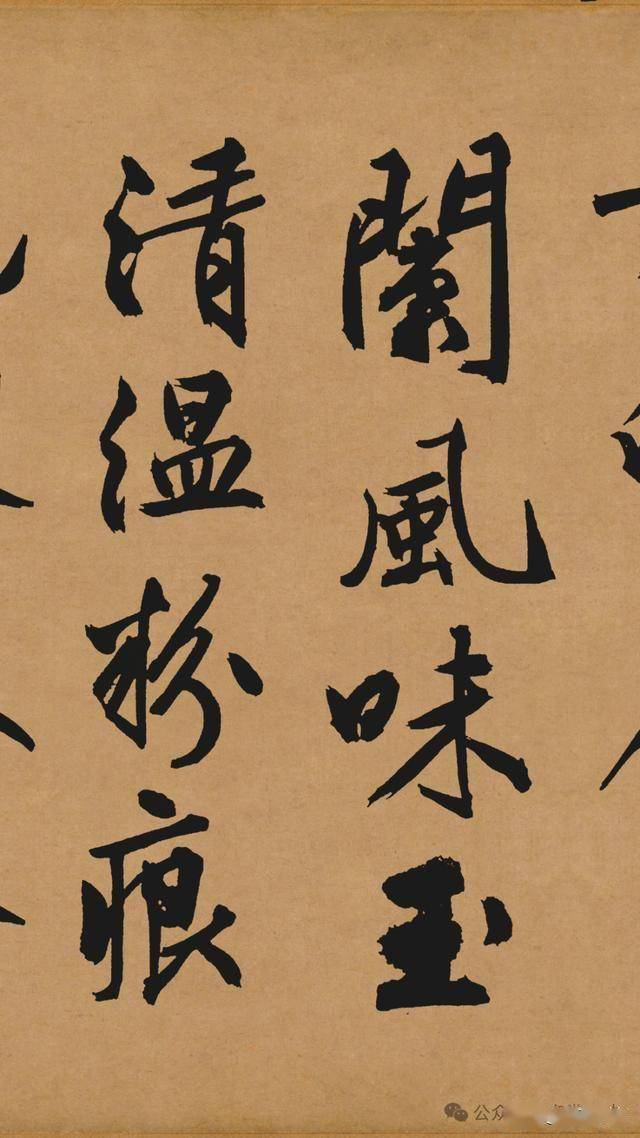 蘭風味玉
清温粉痕
公众